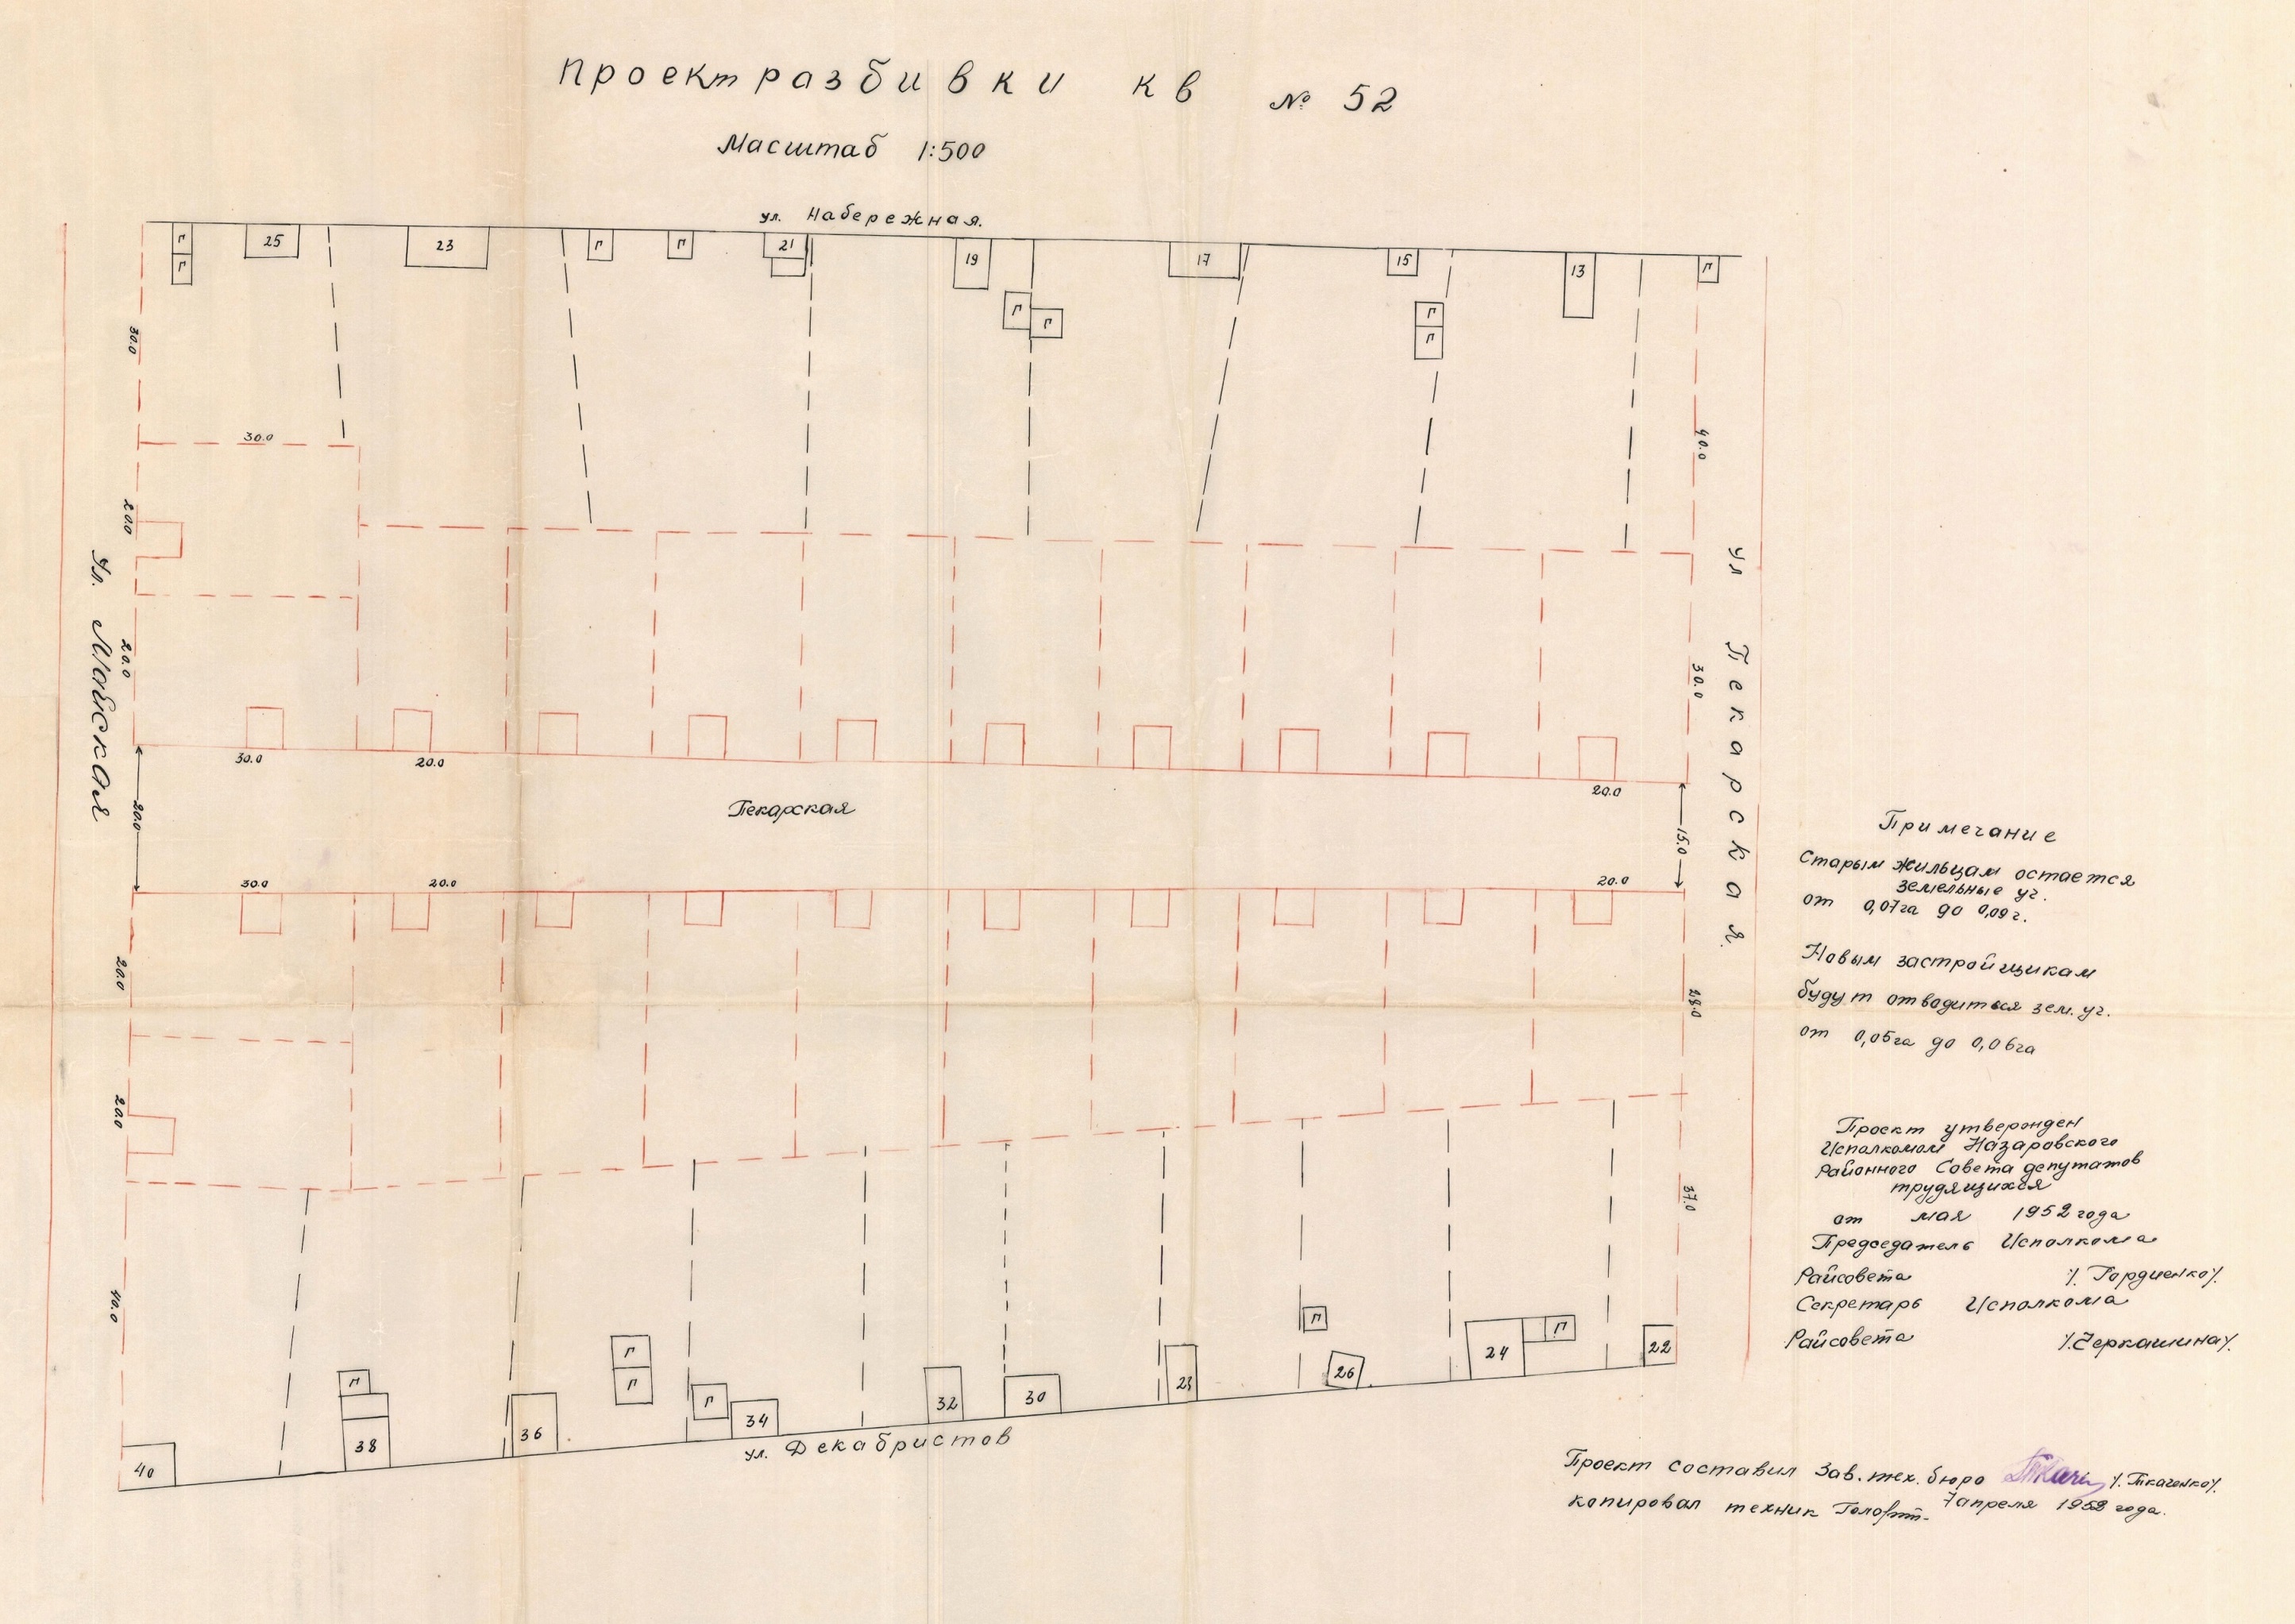 проект разбивки кв № 52
Масштаб 1:500
ул. Набережная.
г
г
25
23
г
г
21
19
г
г
17
15
г
г
13
г
30.0
30.0
20.0
20.0
40.0
30.0
Ул. Майская
ул Пекарская.
30.0
20.0
20.0
20.0
Пекарская
15.0
30.0
20.0
20.0
20.0
20.0
40.0
28.0
37.0
40
г
38
36
г
г
г
34
32
30
г
26
24
г
22
ул. Декабристов
Примечание
Старым жильцам остается
земельные уч.
от 0,07га до 0,09г.
Новым застройщикам
будут отводиться зем. уч.
от 0,05га до 0,06га
Проект утвержден
Исполкомом Назаровского
Районного Совета депутатов
трудящихся
от мая 1952 года
Председатель Исполкома
Райсовета /. Гордиенко/.
Секретарь Исполкома
Райсовета /.Черкашина/.
Проект составил Зав. тех. бюро /. Ткаченко/.
копировал техник 7 апреля 1952 года.